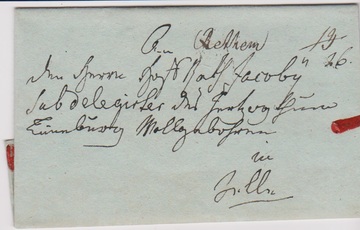 An (Rethem)
den Herrn Hof Rath Jacoby
Subdelegirter des Herzogthum
Lüneburg Wollgebohren
in
Zelle